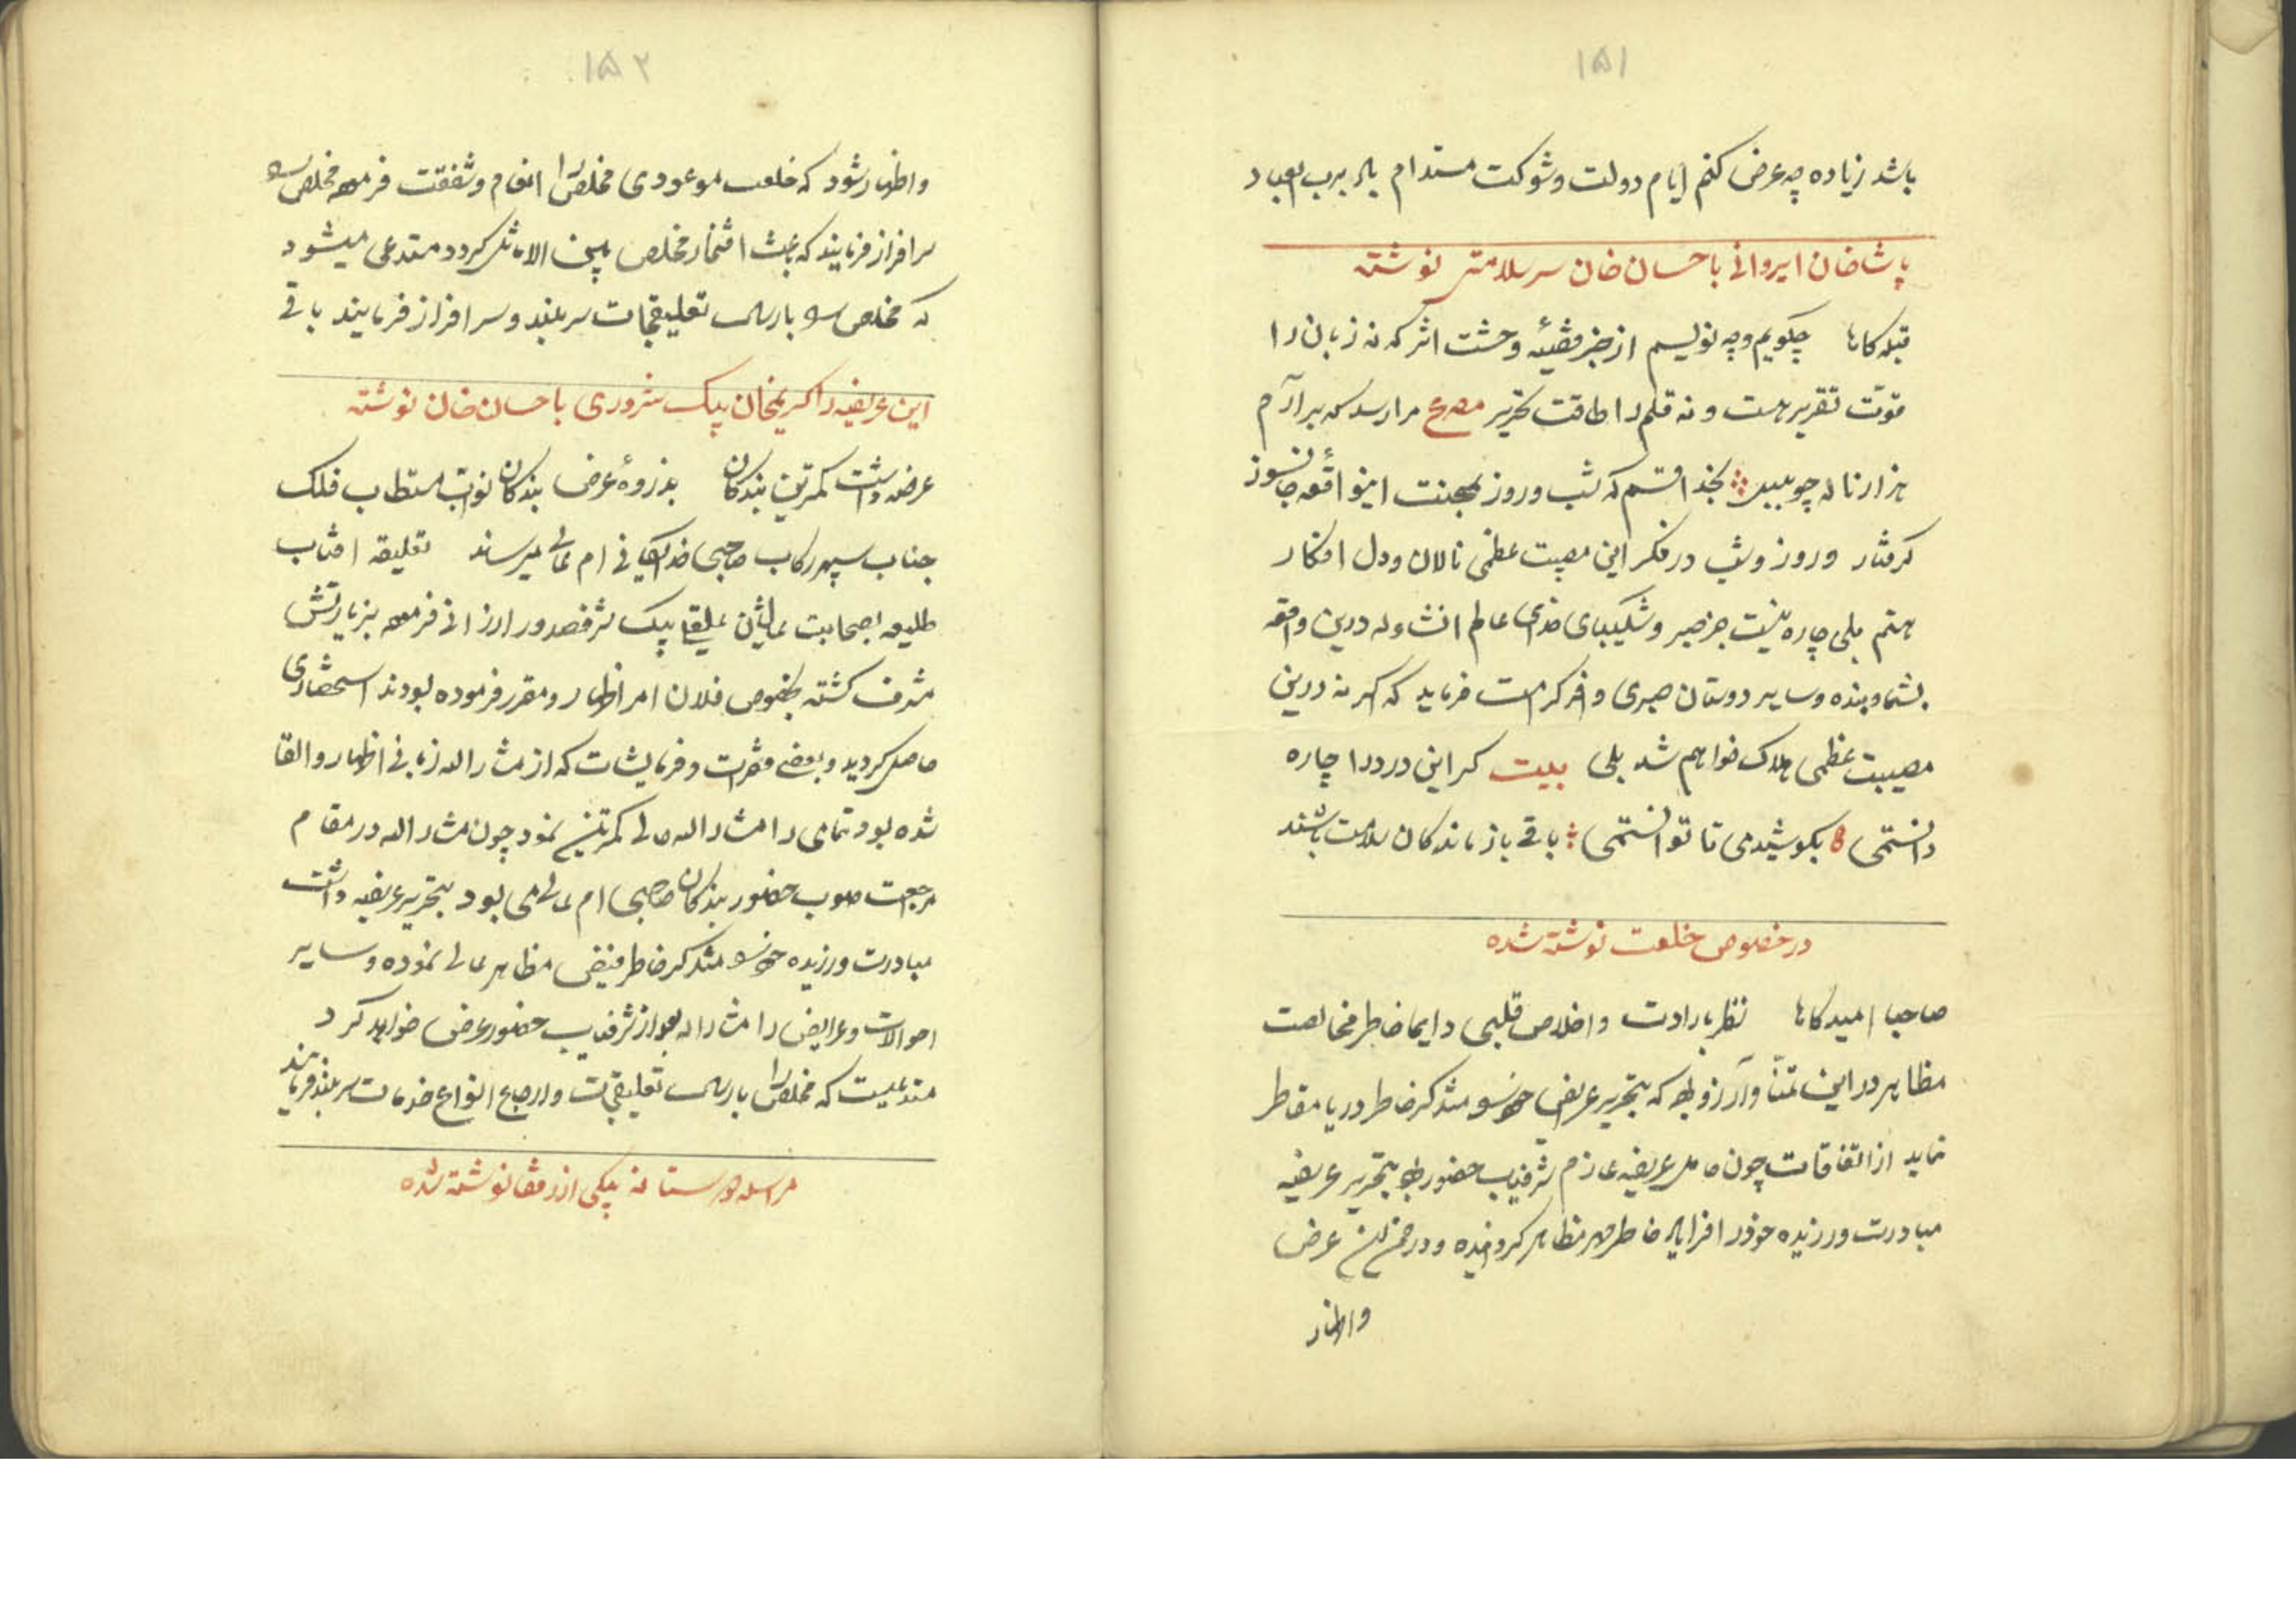 ۱۵۱
باشد زیاده چه عرض کنم ایام دولت و شوکت مستدام باد برب العباد
پاشا خان ایروانی باحسان خان سرسلامتی نوشته
قبله کاها چکویم و چه نویسم از خبر قضیهٔ وحشت اثر که نه زبان را
قوت تقریر هست و نه قلم را طاقت تحریر مصرع مرا رسد که برآرم
هزار ناله چو بلبل بخدا قسم که شب و روز بمحنت اینواقعه جانسوز
کرفتار و روز و شب در فکر این مصیبت عظمی نالان و دل افکار
هستم بلی چاره نیست جز صبر و شکیبای خدای عالم انشاءوله درین واقعه
بشما و بنده و سایر دوستان صبری وافر کرامت فرماید که اکر نه درین
مصیبت عظمی هلاک خواهم شد بلی بیت کر این درد را چاره
دانستمی بکوشیدمی تا توانستمی باقی بازماندکان سلامت باشند
در خصوص خلعت نوشته شده
صاحبا امیدکاها نظر بارادت و اخلاص قلبی دایما خاطر مخالصت
مظاهر در این تمنّا و آرزو بود که بتحریر عریضه خود را متذکر خاطر دریا مقاطر
نماید از اتفاقات چون حامل عریضه عازم شرفیاب حضور بود بتحریر عریضه
مبادرت ورزیده خود را فرایاد خاطر مهر مظاهر کردانیده و در ضمن عرض
و اظهار
۱۵۲
و اظهار شود که خلعت موعودی مخلص را انعام و شفقت فرموده مخلص را
سرافراز فرمایند که باعث افتخار مخلص بین الاماثل کردد مستدعی میشود
که مخلص را بارسال تعلیقجات سربلند و سرافراز فرمایند باقی
این عریضه را کریمخان بیک شروری باحسان خان نوشته
عرضه داشت کمترین بندکان بذروهٔ عرض بندکان نواب مستطاب فلک
جناب سپهر رکاب صاحبی خدایکانی ام عالی میرساند تعلیقه افتاب
طلیعه بصحابت عالیشان علیقلی بیک شرفصدور ارزانی فرموده بزیارتش
مشرف کشته بخصوص فلان امر اظهار و مقرر فرموده بودند استحضاری
حاصل کردید و بعضی فقرات و فرمایشات که از مشارالیه زبانی اظهار و القا
شده بود تمامی را مشارالیه حالی کمترین نمود چون مشارالیه در مقام
مراجعت صوب حضور بندکان صاحبی ام عالی می بود بتحریر عریضه داشت
مبادرت ورزیده خود را متذکر خاطر فیض مظاهر عالی نموده و سایر
احوالات و عرایض را مشارالیه بعد از شرفیاب حضور عرض خواهد کرد
مستدعیست که مخلص را بارسال تعلیقجات و ارجاع انواع خدمات سربلند فرمایند
مراسله دوستانه بیکی از رفقا نوشته شده